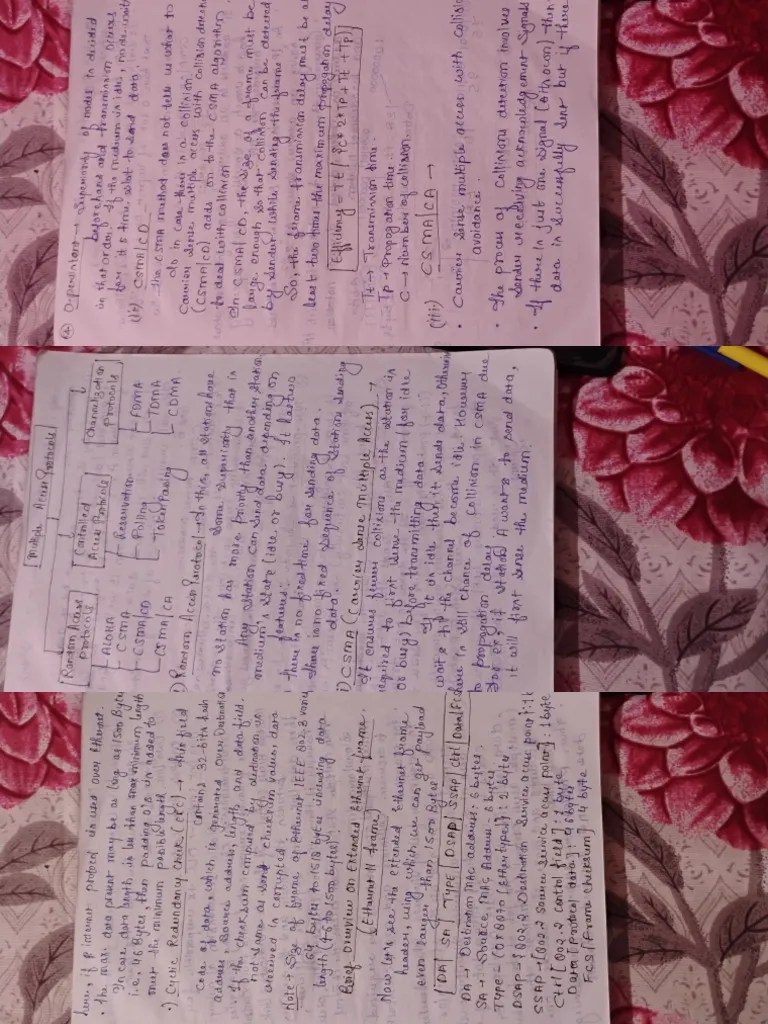 ④ O-persistent → Superiority of nodes is decided
beforehand and transmission occurs
in that order. If the medium is idle, node waits
for its time slot to send data.
(ii) CSMA/CD
The CSMA method does not tell us what to
do in case there is a collision.
Carrier sense multiple access with collision detection
(CSMA/CD) adds on to the CSMA algorithm
to deal with collision
In CSMA/CD, the size of a frame must be
large enough so that collision can be detected
by sender while sending the frame
So, the frame transmission delay must be at
least two times the maximum propagation delay
Efficiency = Tt / (C * 2*Tp + Tt + Tp)
Tt → Transmission time
Tp → Propagation time
C → Number of collision
(iii) CSMA/CA →
• Carrier sense multiple access with collision
avoidance.
• The process of collisions detection involves
sender receiving acknowledgement signals
• If there is just one signal (its own) then
data is successfully sent but if there
Multiple Access Protocols
Random Access Protocols
Controlled Access Protocols
Channelization Protocols
ALOHA
CSMA
CSMA/CD
CSMA/CA
Reservation
Polling
Token Passing
FDMA
TDMA
CDMA
) Random Access Protocol → In this, all station have
same superiority that is
no station has more priority than another station
Any station can send data depending on
medium's state (idle or busy). It has two
features:
There is no fixed time for sending data
There is no fixed sequence of station sending
data.
i) CSMA (Carrier Sense Multiple Access) →
It ensures fewer collisions as the station is
required to first sense the medium (for idle
or busy) before transmitting data.
If it is idle then it sends data, otherwise
waits till the channel become idle. However
there is still chance of collision in CSMA due
to propagation delay
For ex: if station A wants to send data,
it will first sense the medium.
here, if IP internet protocol is used over Ethernet.
• The max. data present may be as long as 1500 Bytes
In case data length is less than minimum length
i.e. 46 Bytes, then padding 0's is added to
meet the minimum possible length
•) Cyclic Redundancy Check (CRC) → This field
contains 32-bits hash
code of data, which is generated over Destination
address, source address, length, and data field.
If the checksum computed by destination is
not same as send checksum value, data
received is corrupted.
Note → Size of frame of Ethernet IEEE 802.3 varies
64 bytes to 1518 bytes including data
length (46 to 1500 bytes)
Brief overview on Extended Ethernet frame
(Ethernet II frame)
Now let's see the extended Ethernet frame
header, using which we can get Payload
even larger than 1500 bytes
DA | SA | TYPE | DSAP | SSAP | Ctrl | Data | FCS
DA → Destination MAC address: 6 bytes
SA → Source MAC Address: 6 bytes
TYPE → [0x8870 (Ethertype)]: 2 bytes
DSAP → [802.2 Destination Service access point]: 1 b
SSAP → [802.2 Source Service access point]: 1 byte
Ctrl [802.2 control field]: 1 byte
Data [Protocol data]:
FCS [Frame checksum]: 4 byte